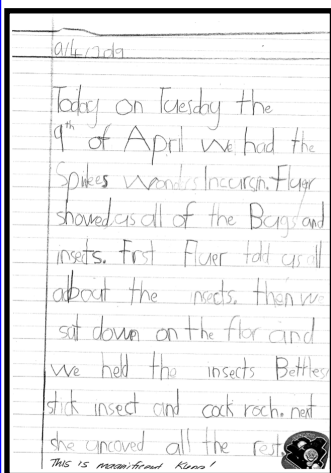 9/4/2019
Today on Tuesday the
9th of April we had the
Spikes Wonders Incursin. Flyer
showed us all of the Bugs and
insects. First Flyer told us all
about the insects. then we
sat down on the flor and
we held the insects Bettles
stick insect and cock roch. next
she uncoved all the rest
This is magnificent